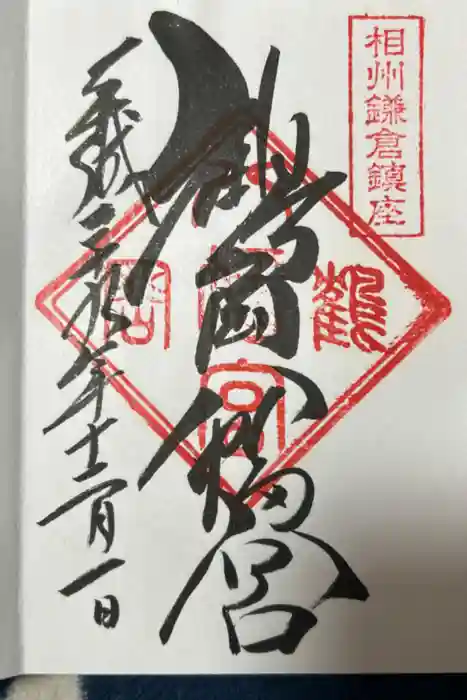 相州鎌倉鎮座
鶴岡八幡宮
鶴岡八幡宮
平成二十九年十二月一日